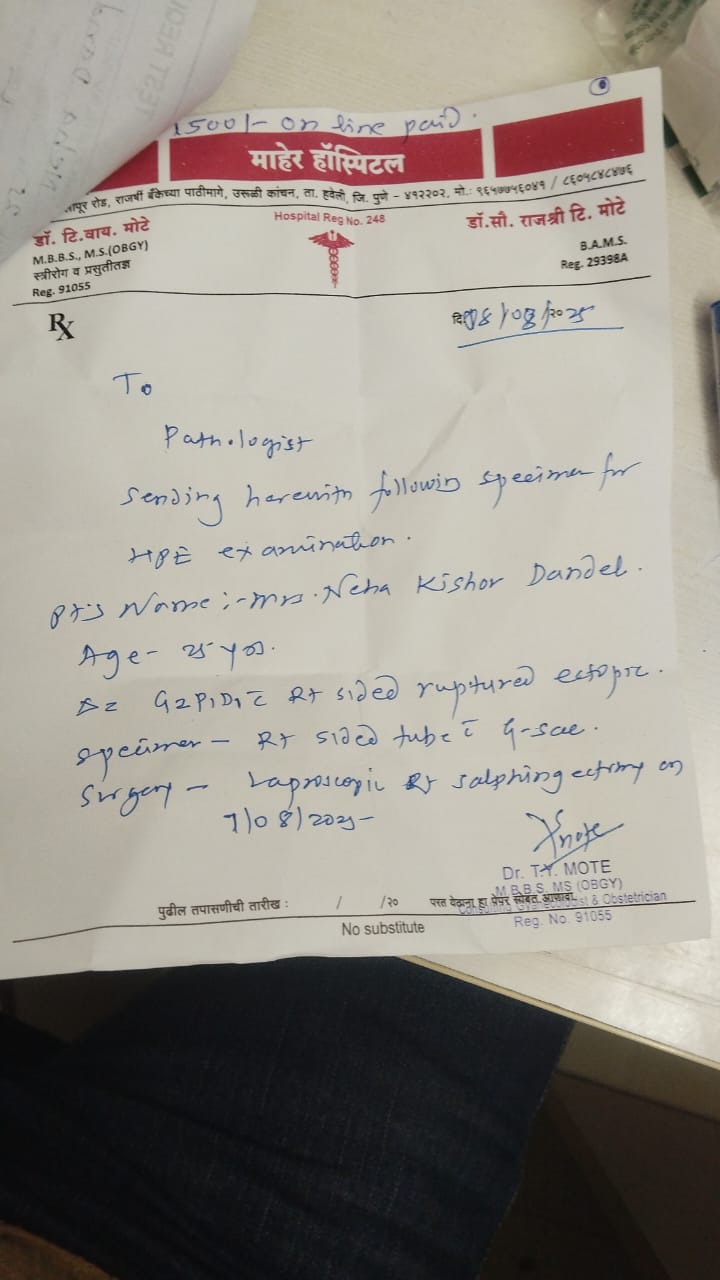 TEST REQU
1500/- on line paid.
माहेर हॉस्पिटल
रोड, राजर्षी बँकेच्या पाठीमागे, उरूळी कांचन, ता. हवेली, जि. पुणे - ४१२२०२. मो.: ९६५७७५६०४१ / ८६०५८४८४७६
Hospital Reg No. 248
डॉ. टि.वाय. मोटे
M.B.B.S., M.S.(OBGY)
स्त्रीरोग व प्रसुतीतज्ञ
Reg. 91055
डॉ.सौ. राजश्री टि. मोटे
B.A.M.S.
Reg. 29398A
Rx
दि. /08/२०२५
To
Pathologist
Sending herewith following specimen for
HPE examination.
Pt's Name :- Mrs. Neha Kishor Dandel.
Age - 25 yrs.
Δ= G2P1D1 c̄ Rt sided ruptured ectopic.
specimen - Rt sided tube c̄ G-sac.
Surgery - Laproscopic Rt salphingectomy on
7/08/2025
Dr. T.Y. MOTE
M.B.B.S. MS (OBGY)
Consulting Gynaecologist & Obstetrician
Reg. No. 91055
पुढील तपासणीची तारीख : / /२० परत येताना हा पेपर सोबत आणावा.
No substitute